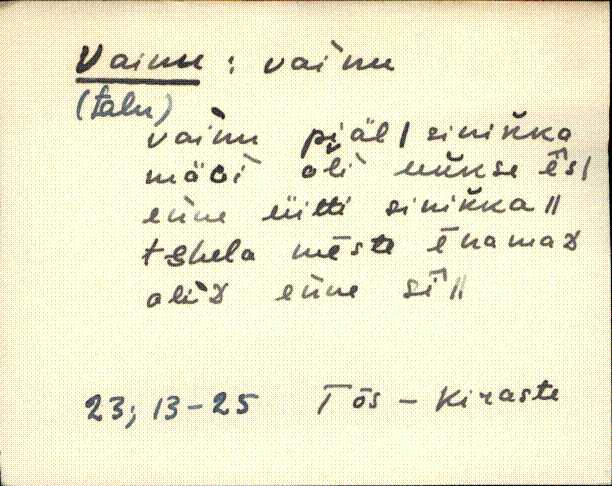 Vainu : vaìnu
(talu)
vaìnu piäl | sinik̆ka
mäGi oli uk̆se ēs |
eùne üitti sinik̆ka ||
tēhela mēste ēnamaD
oliD eùne sī ||
23; 13-25 Tõs - Kiraste